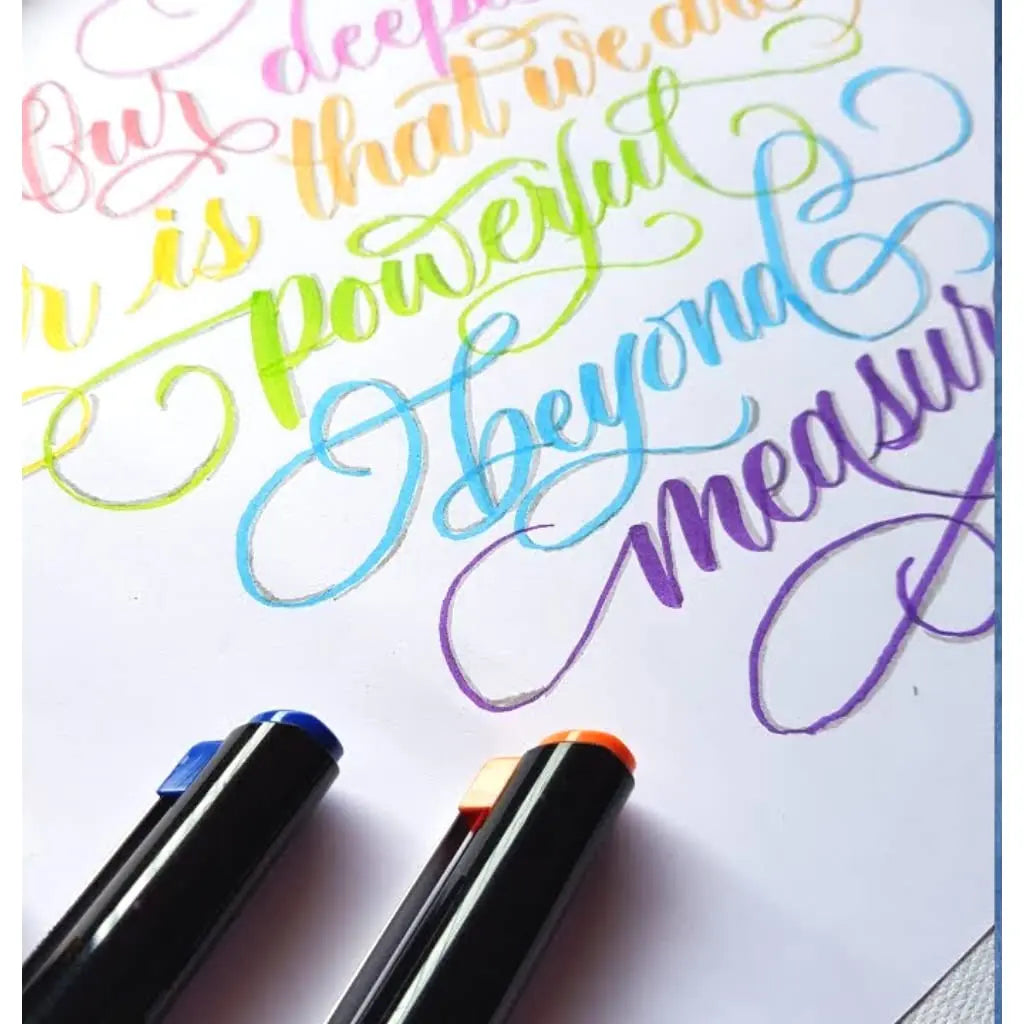 Our deep
r is that we
powerful
beyond
measur